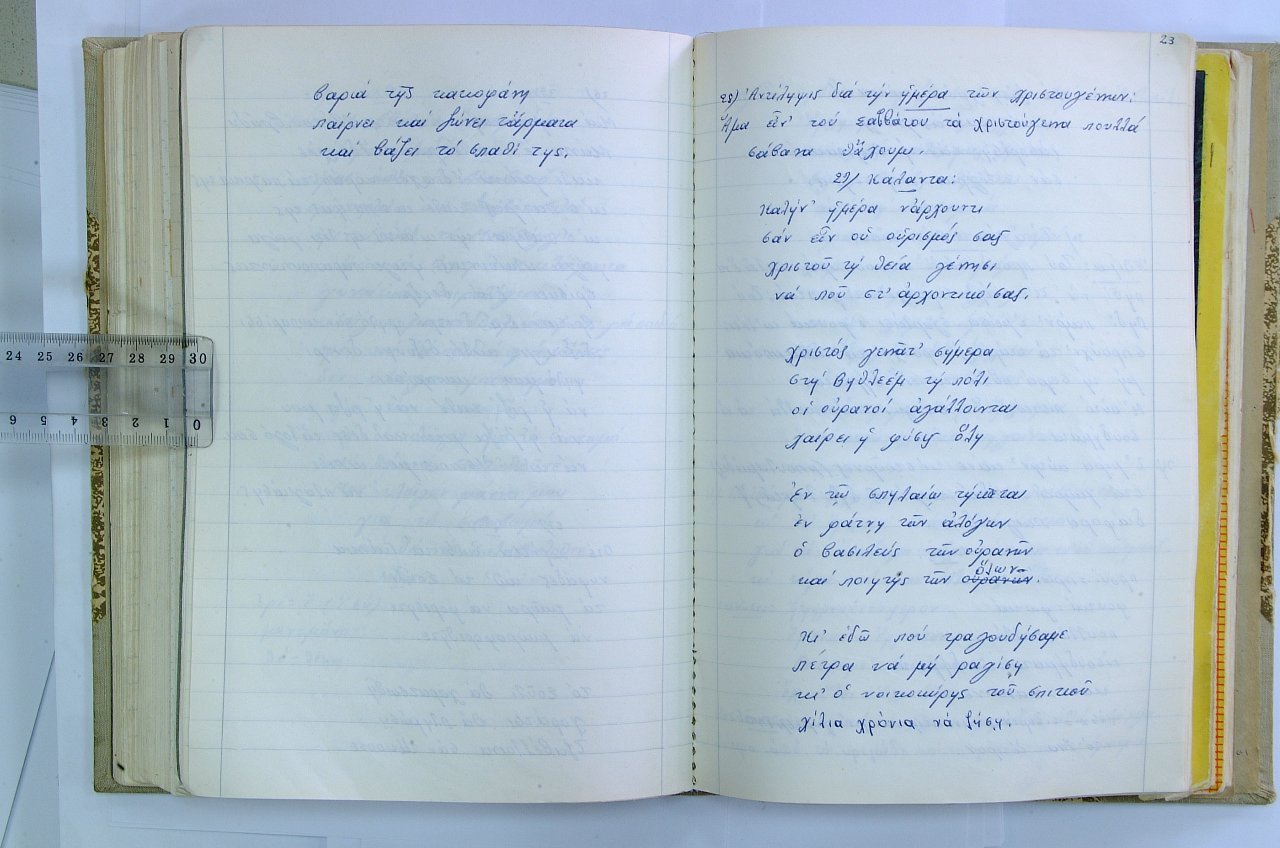 βαριά τῆς κακοφάνη
παίρνει καί ζώνει τἄρματα
καί βάζει τό σπαθί της.
23
28) Ἀντίληψις διά τήν ἡμέρα τῶν Χριστουγέννων:
Ἅμα εἶν' τοῦ Σαββάτου τά Χριστούγεννα πουλλά
σάβανα θἄχουμι.
29/ Κάλαντα:
Καλήν' ἡμέρα νἄρχουντι
σάν εἶν οὐ οὑρισμός σας
Χριστοῦ τή θεία γέννησι
νά ποῦ στ' ἀρχοντικό σας.
Χριστός γεννᾶτ' σήμερα
στή Βηθλεέμ τή πόλι
οἱ οὐρανοί ἀγάλλονται
χαίρει ἡ φύσις ὅλη
Ἐν τῶ σπηλαίω τίκτεται
ἐν φάτνη τῶν ἀλόγων
ὁ βασιλεύς τῶν οὐρανῶν
καί ποιητής τῶν οὐρανῶν ὅλων.
Κι' ἐδῶ πού τραγουδήσαμε
πέτρα νά μή ραγίση
κι' ὁ νοικοκύρης τοῦ σπιτιοῦ
χίλια χρόνια νά ζήση.
24 25 26 27 28 29 30
6 5 4 3 2 1 0